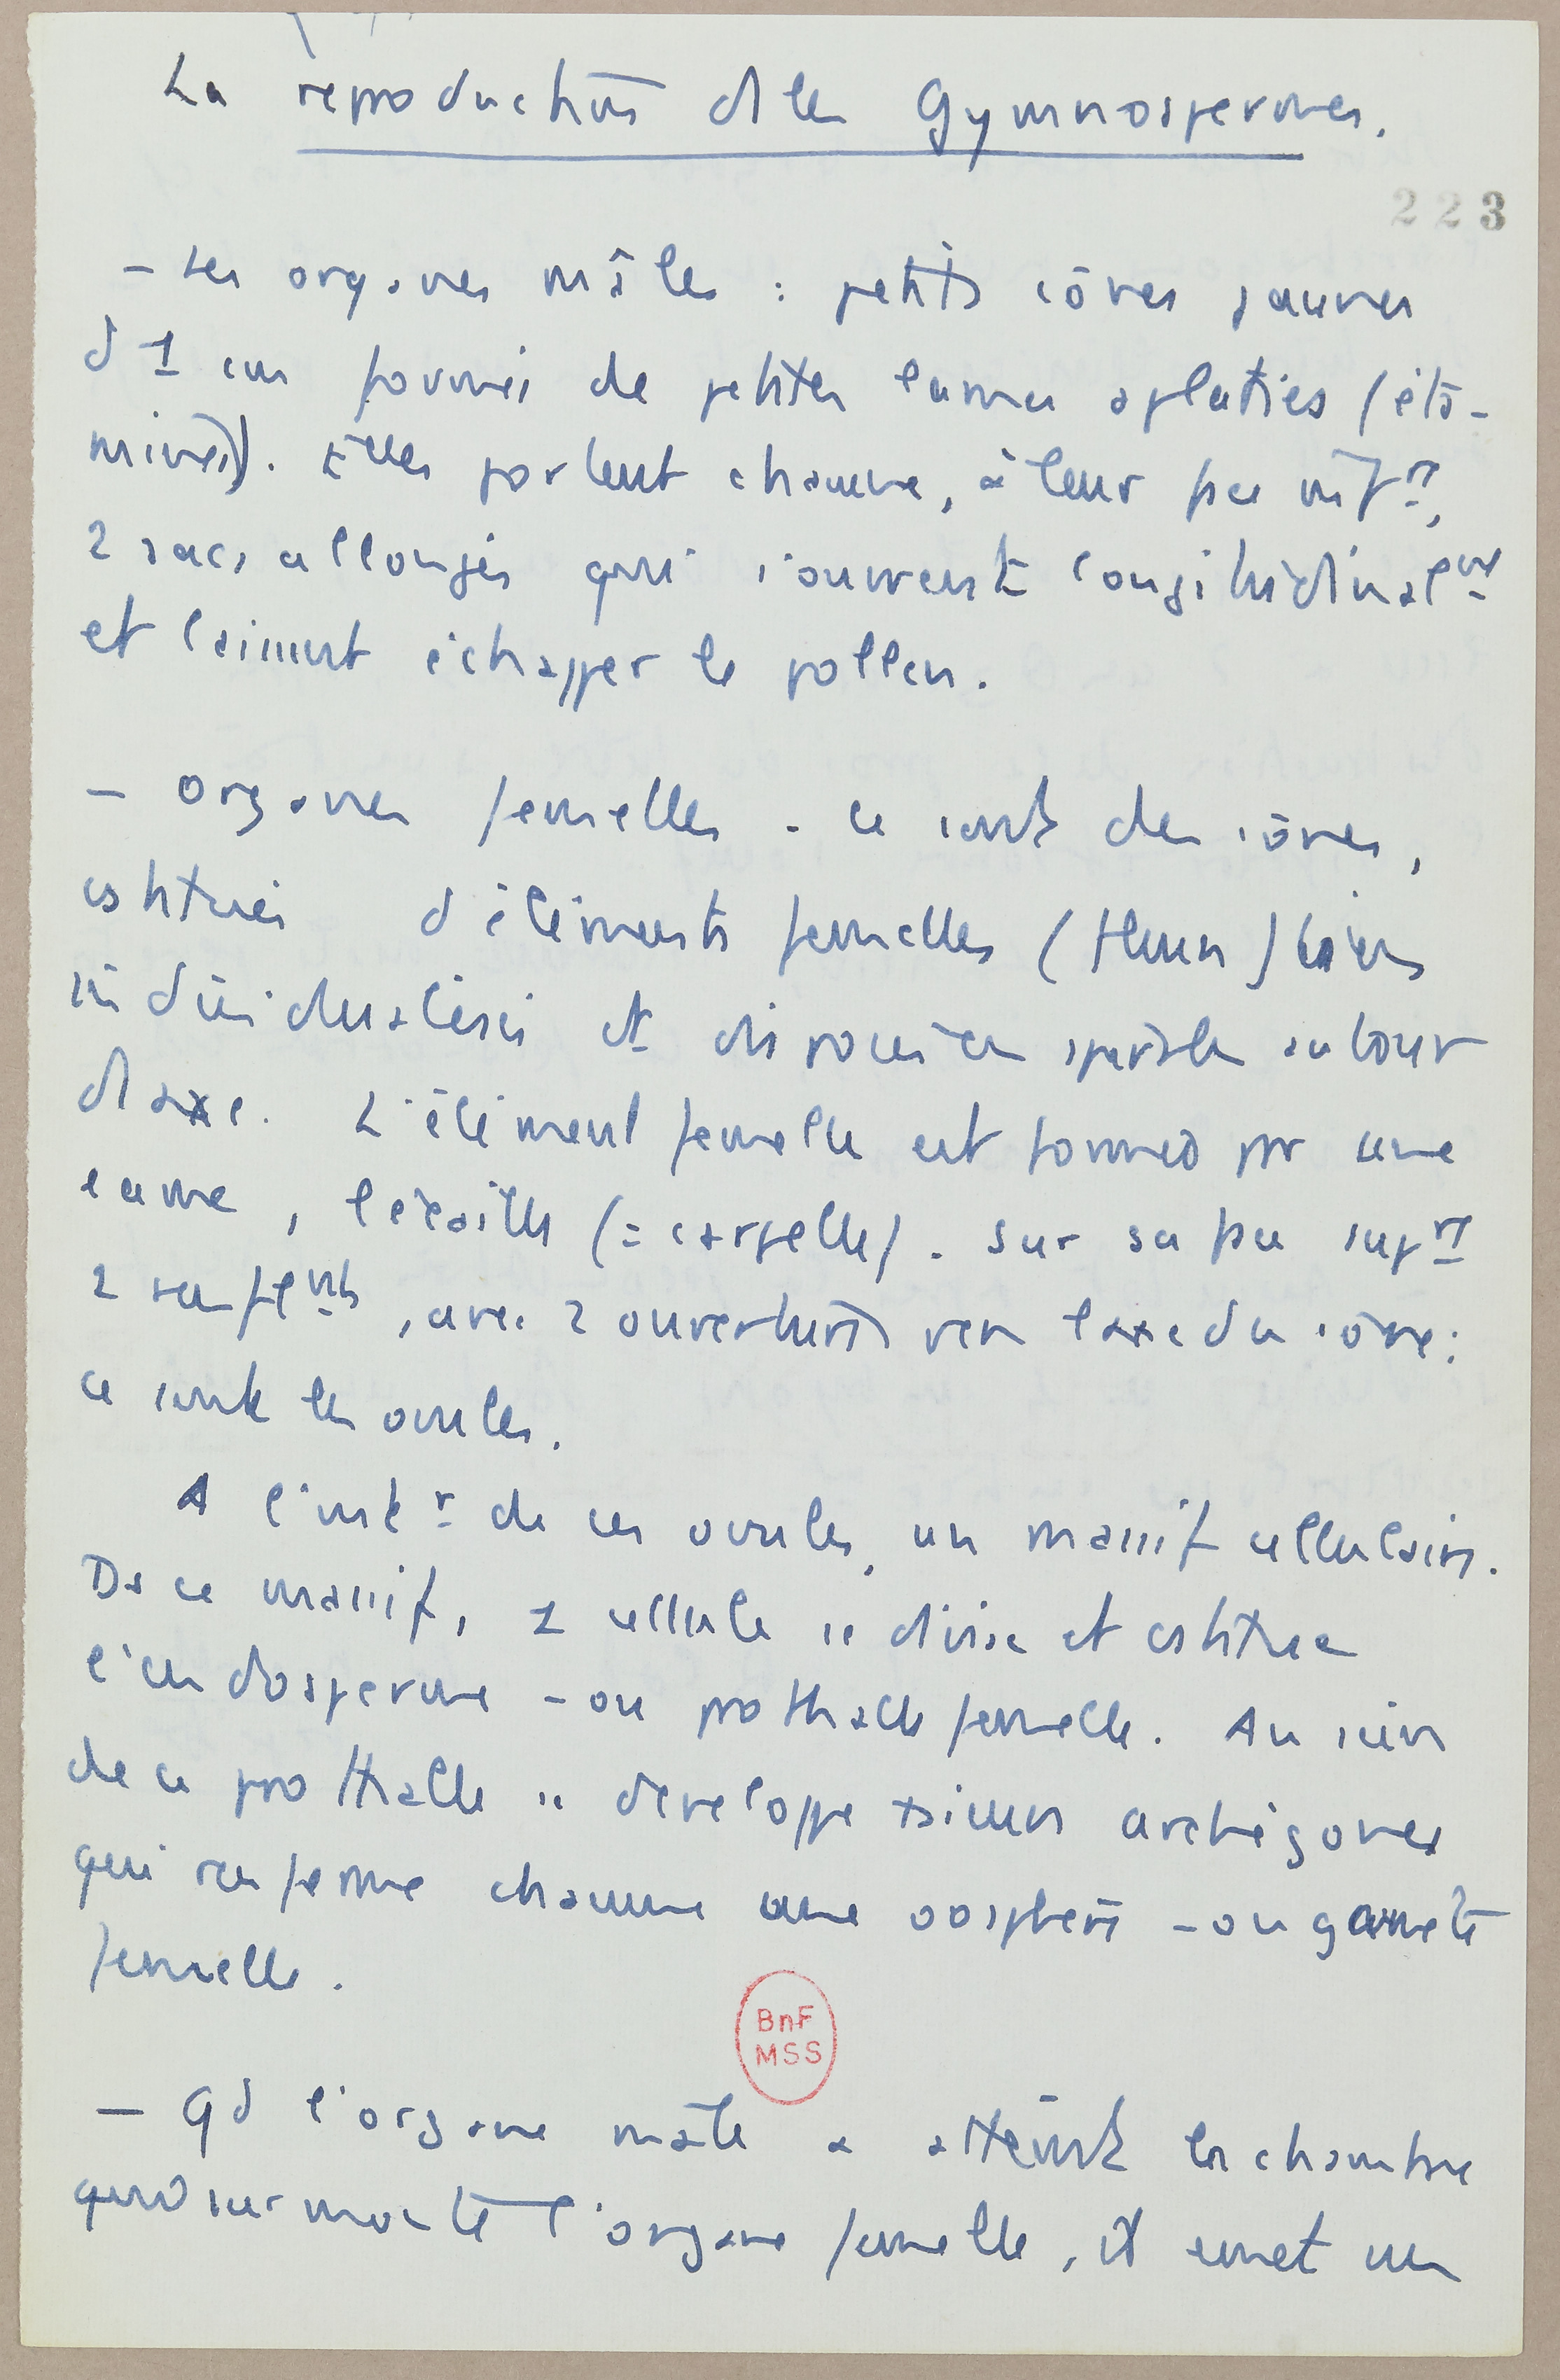 La reproduction d les Gymnospermes.
223
- Les organes mâles : petits cônes jaunes
d 1 cm formés de petites lames aplaties (éta-
mines). Elles portent chacune, à leur face inf^re,
2 sacs allongés qui s'ouvrent longitudinal^mt
et laissent échapper le pollen.
- Organes femelles. Ce sont des cônes,
cstitués d'éléments femelles (fleurs) bien
individualisés et disposés en spirale autour
d axe. L'élément femelle est formé par une
lame, l'écaille (= carpelle). Sur sa face sup^re
2 renfl^mts, avec 2 ouvertures vers l'axe du cône :
ce sont les ovules.
A l'int^r de ces ovules, un massif cellulaire.
Ds ce massif, 1 cellule se divise et cstitue
l'endosperme - ou prothalle femelle. Au sein
de ce prothalle se développe plusieurs archégones
qui renferme chacune une oosphère - ou gamète
femelle.
BnF
MSS
- Qd l'organe mâle a atteint la chambre
qui surmonte l'organe femelle, il émet un